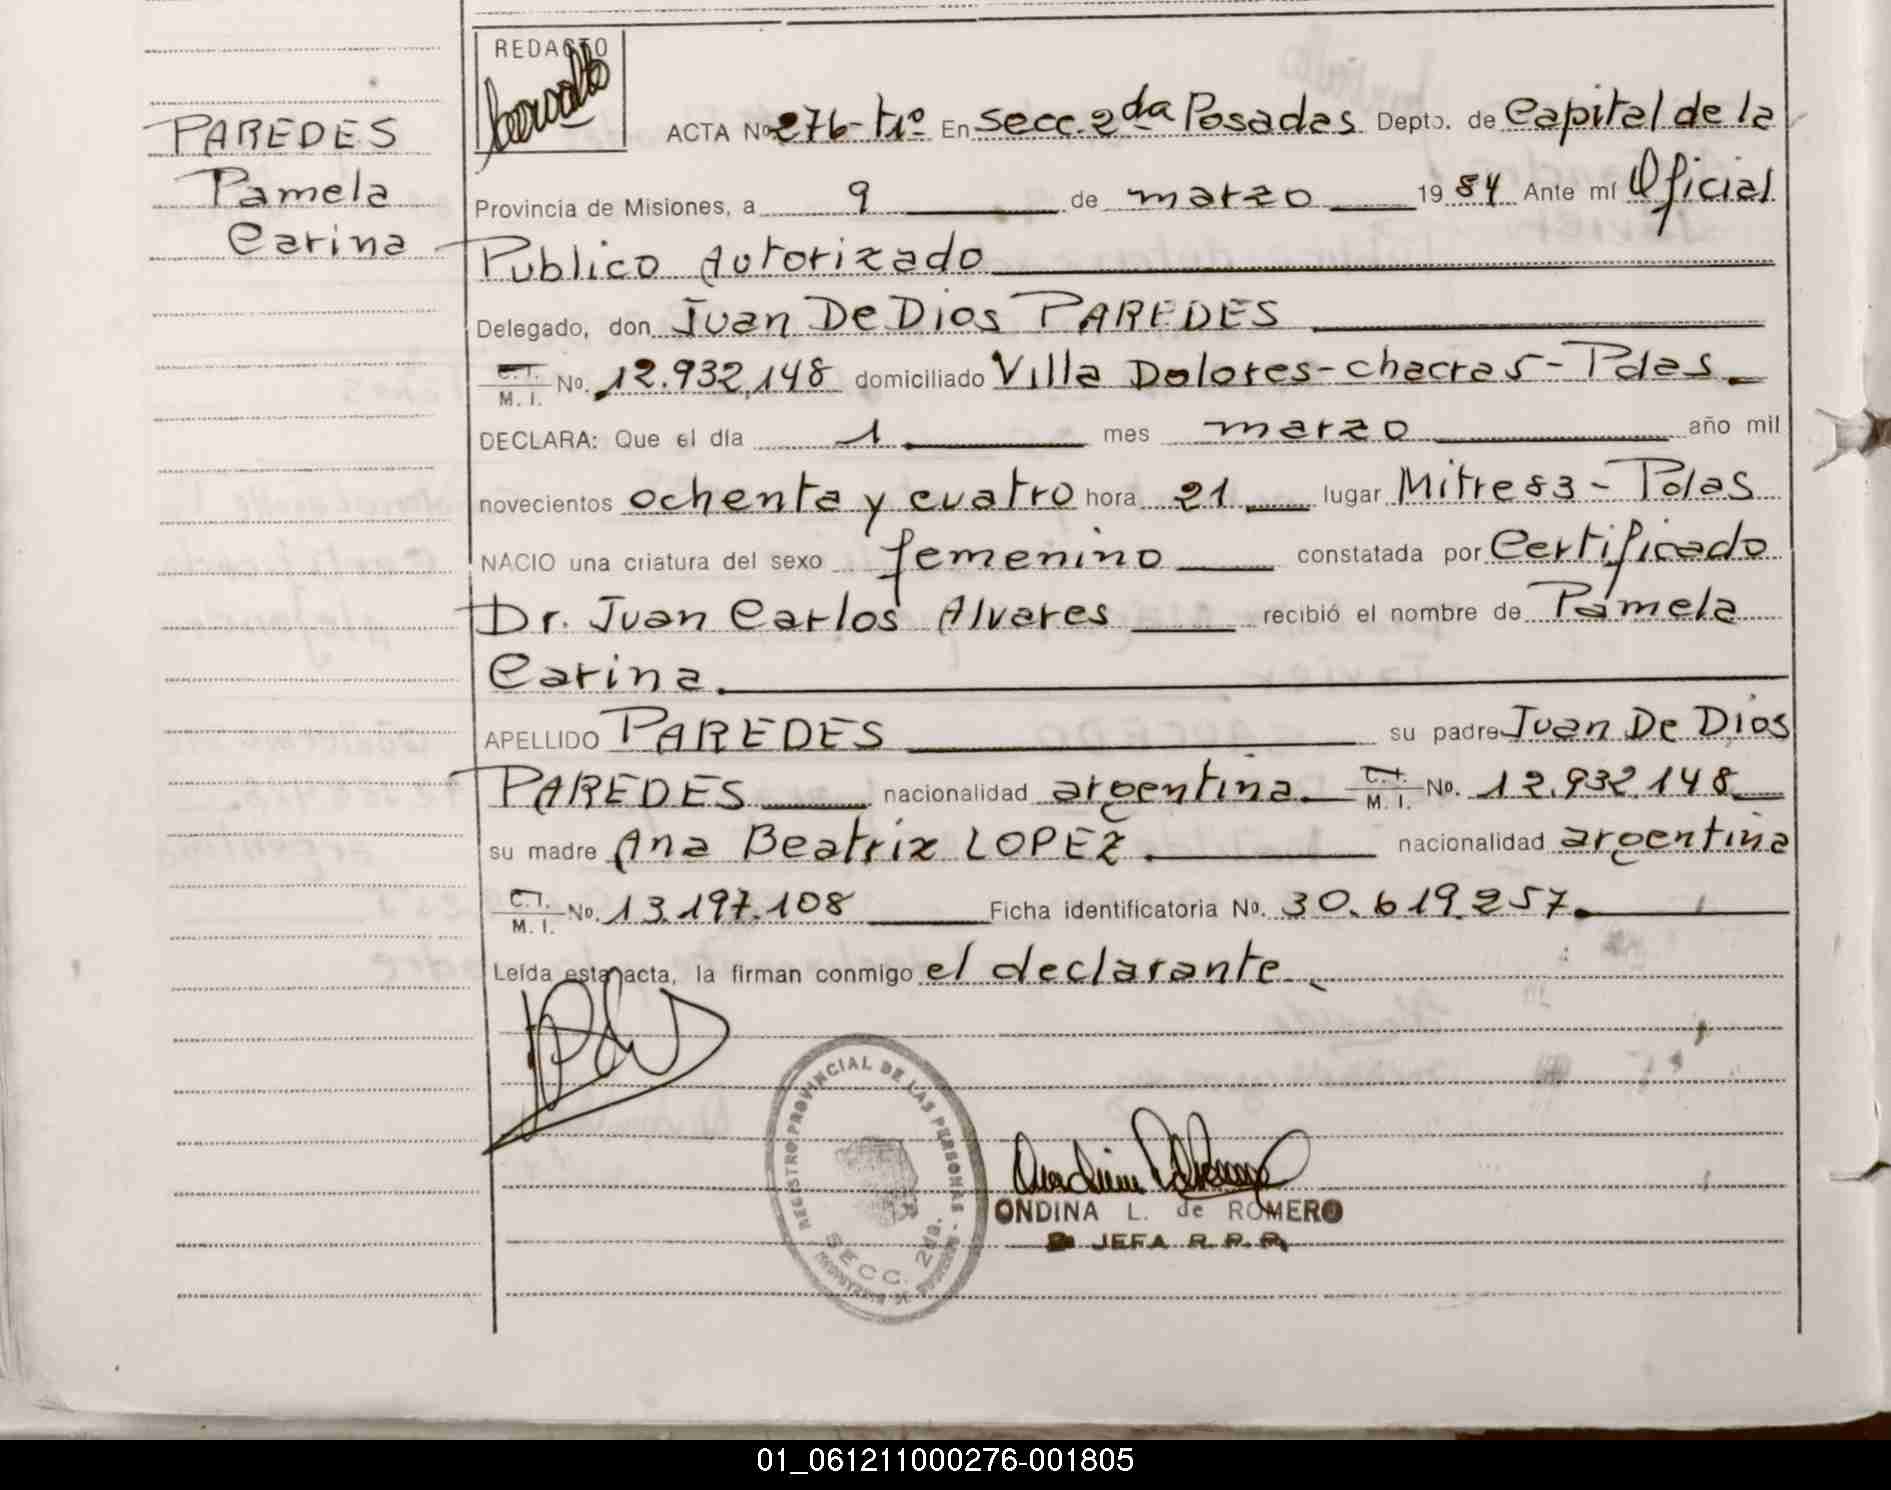 REDACTO
PAREDES
Pamela
Carina
ACTA Nº 276-Tº1º En secc. 2da Posadas Depto. de Capital de la
Provincia de Misiones, a 9 de marzo 1984 Ante mí Oficial
Publico Autorizado
Delegado, don Juan De Dios PAREDES
C.I. M. I. No. 12.932,148 domiciliado Villa Dolores-chacras-Pdas
DECLARA: Que el día 1 mes marzo año mil
novecientos ochenta y cuatro hora 21 lugar Mitre 83 - Pdas
NACIO una criatura del sexo femenino constatada por Certificado
Dr. Juan Carlos Alvares recibió el nombre de Pamela
Carina
APELLIDO PAREDES su padre Juan De Dios
PAREDES nacionalidad argentina C.I. M. I. No. 12.932.148
su madre Ana Beatriz LOPEZ nacionalidad argentina
C.I. M. I. No. 13.197.108 Ficha identificatoria No. 30.619.257
Leída esta acta, la firman conmigo el declarante
REGISTRO PROVINCIAL DE LAS PERSONAS
SECC. 2da.
ONDINA L. de ROMERO
JEFA R. P. P.
01_061211000276-001805